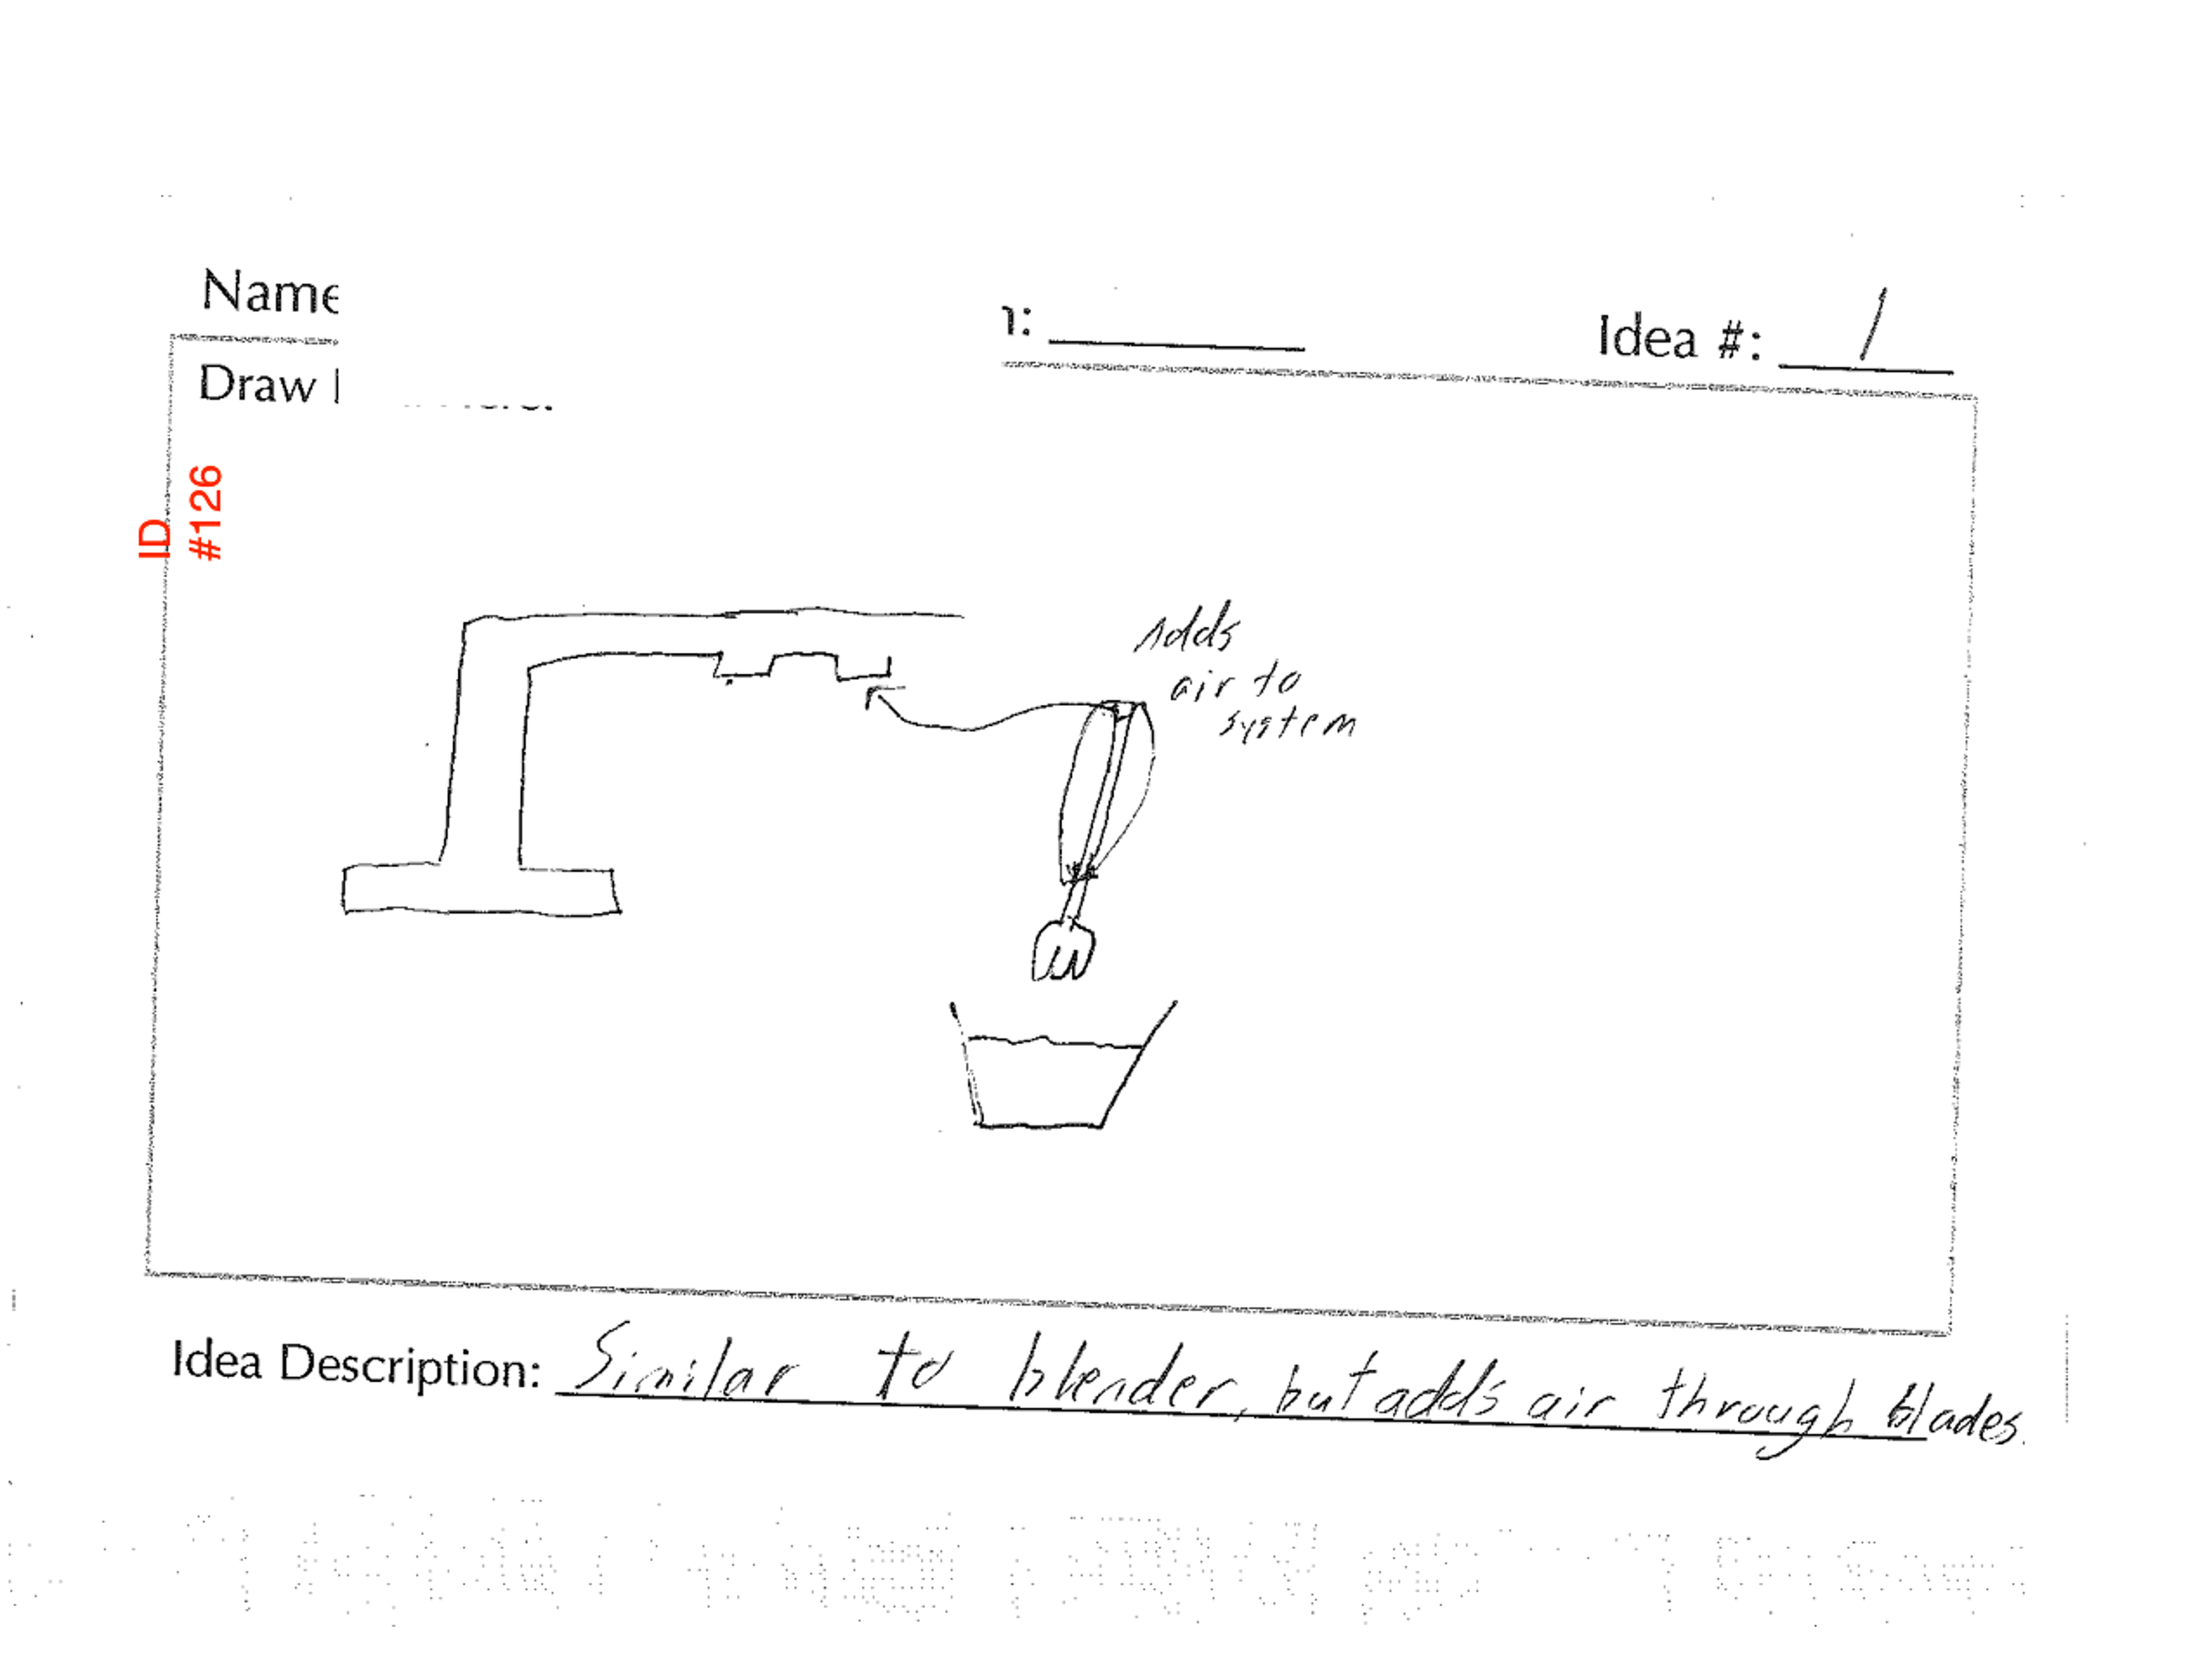 Name
Idea #: 1
Draw
ID
#126
Adds
air to
system
Idea Description: Similar to blender, but adds air through blades.